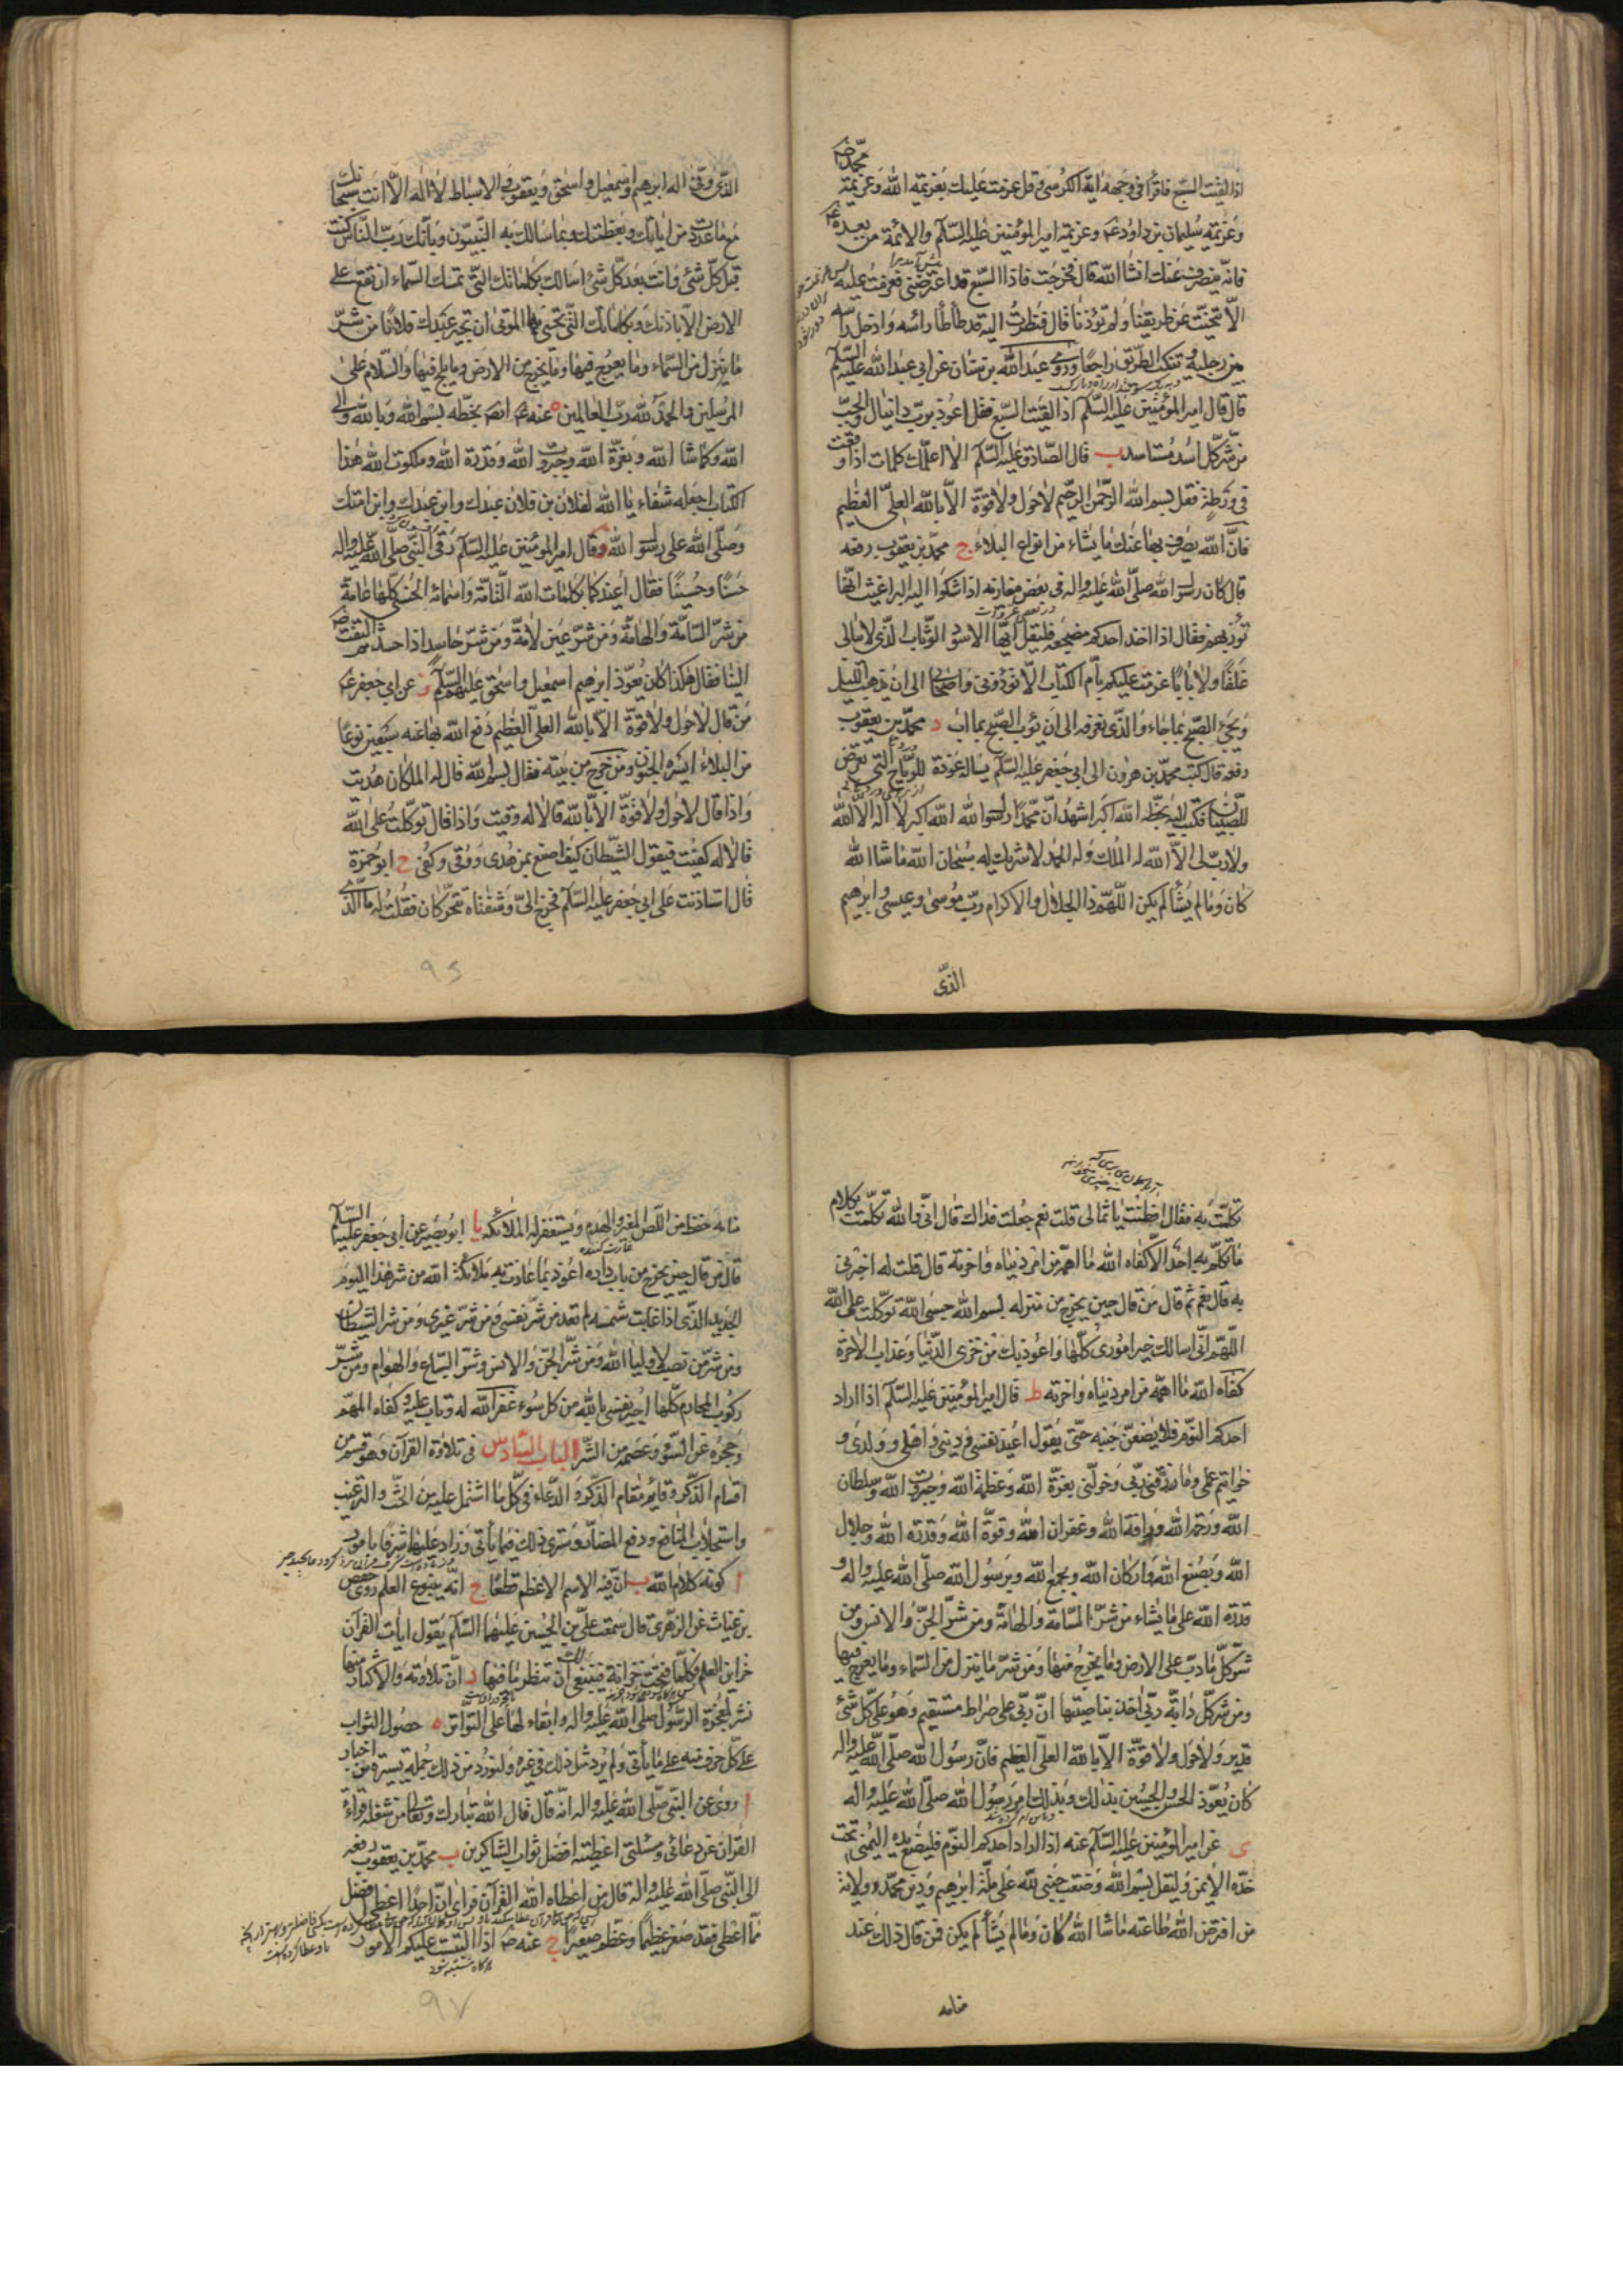 محمد ص
اذا لقيت السبع فاقرأ فى وجهه اية الكرسى و قل عزمت عليك بعزيمة الله و عزيمة
و عزيمة سليمان بن داود ع و عزيمة امير المؤمنين عليه السلام و الائمة من بعده
فانه ينصرف عنك انشا الله قال فخرجت فاذا السبع قد اعترضنى فعزمت عليه
الا تنحيت عن طريقنا و لم تؤذنا قال فنظرت اليه قد طأطأ رأسه و ادخل
بين رجليه و تنكب الطريق راجعا و روى عبد الله بن سنان عن ابى عبد الله عليه السلام
قال قال امير المؤمنين عليه السلام اذا لقيت السبع فقل اعوذ برب دانيال و الجب
من شر كل اسد مستاسد ب قال الصادق عليه السلام الا اعلمك كلمات اذا وقعت
فى ورطة فقل بسم الله الرحمن الرحيم لا حول و لا قوة الا بالله العلى العظيم
فان الله يصرف بها عنك ما يشاء من انواع البلاء ج محمد بن يعقوب رفعه
قال كان رسول الله صلى الله عليه و اله فى بعض مغازيه اذا شكوا اليه البراغيث انها
تؤذيهم فقال اذا اخذ احدكم مضجعه فليقل ايها الاسود الوثاب الذى لا يبالى
غلقا و لا بابا عزمت عليكم بام الكتاب الا تؤذونى و اصحابى الى ان يذهب الليل
و يجئ الصبح بما جاء و الذى نعرفه الى ان يؤب الصبح بما اب د محمد بن يعقوب
رفعه قال كتب محمد بن هرون الى ابى جعفر عليه السلام يساله عوذة للرياح التى تعرض
للصبيان فكتب اليه بخطه الله اكبر اشهد ان محمدا رسول الله الله اكبر لا اله الا الله
و لا رب لى الا الله له الملك و له الحمد لا شريك له سبحان الله ما شا الله
كان و ما لم يشأ لم يكن اللهم ذا الجلال و الاكرام رب موسى و عيسى و ابرهيم
الذى
الذى وفى اله ابرهيم و اسمعيل و اسحق و يعقوب و الاسباط لا اله الا انت سبحانك
مع ما عددت من اياتك و بعظمتك و بما سالك به النبيون و بانك رب الناس كنت
قبل كل شئ و انت بعد كل شئ اسالك بكلماتك التى تمسك السماء ان تقع على
الارض الا باذنك و بكلماتك التى تحيى بها الموتى ان تجير عبدك فلانا من شر
ما ينزل من السماء و ما يعرج فيها و ما يخرج من الارض و ما يلج فيها و السلام على
المرسلين و الحمد لله رب العالمين ه عنه ع بخطه بسم الله و بالله و الى
الله و كما شا الله و بعزة الله و جبروت الله و قدرة الله و ملكوت الله هذا
الكتاب اجعله شفاء يا الله لفلان بن فلان عبدك و ابن عبدك و ابن امتك
و صلى الله على رسول الله و قال امير المؤمنين عليه السلام رقى النبى صلى الله عليه و اله
حسنا و حسينا فقال اعيذكما بكلمات الله التامة و اسمائه الحسنى كلها عامة
من شر السامة و الهامة و من شر عين لامة و من شر حاسد اذا حسد ثم التفت
الينا فقال هكذا كان يعوذ ابرهيم اسمعيل و اسحق عليهم السلام ز عن ابى جعفر ع
من قال لا حول و لا قوة الا بالله العلى العظيم دفع الله بها عنه سبعين نوعا
من البلاء ايسره الجنون و من خرج من بيته فقال بسم الله قال له الملكان هديت
و اذا قال لا حول و لا قوة الا بالله قالا له وقيت و اذا قال توكلت على الله
قالا له كفيت فيقول الشيطان كيف اصنع بمن هدى و وقى و كفى ح ابو حمزة
قال استاذنت على ابى جعفر عليه السلام فخرج الى و شفتاه تتحركان فقلت له ما الذى
٩٥
تكلمت به فقال افطنت يا ثمالى قلت نعم جعلت فداك قال انى و الله تكلمت بكلام
ما تكلم به احد الا كفاه الله ما اهمه من امر دنياه و اخرته قال قلت له اخبرنى
به قال نعم ثم قال من قال حين يخرج من منزله بسم الله حسبى الله توكلت على الله
اللهم انى اسالك خير امورى كلها و اعوذ بك من خزى الدنيا و عذاب الاخرة
كفاه الله ما اهمه من امر دنياه و اخرته ط قال امير المؤمنين عليه السلام اذا اراد
احدكم النوم فلا يضعن جنبه حتى يقول اعيذ نفسى و دينى و اهلى و ولدى و
خواتيم عملى و ما رزقنى ربى و خولنى بعزة الله و عظمة الله و جبروت الله و سلطان
الله و رحمة الله و رافة الله و غفران الله و قوة الله و قدرة الله و جلال
الله و بصنع الله و اركان الله و بجمع الله و برسول الله صلى الله عليه و اله و
قدرة الله على ما يشاء من شر السامة و الهامة و من شر الجن و الانس و من
شر كل ما دب على الارض و ما يخرج منها و من شر ما ينزل من السماء و ما يعرج فيها
و من شر كل دابة ربى اخذ بناصيتها ان ربى على صراط مستقيم و هو على كل شئ
قدير و لا حول و لا قوة الا بالله العلى العظيم فان رسول الله صلى الله عليه و اله
كان يعوذ الحسن و الحسين بذلك و بذلك امر رسول الله صلى الله عليه و اله
ى عن امير المؤمنين عليه السلام عنه اذا اراد احدكم النوم فليضع يده اليمنى تحت
خده الايمن و ليقل بسم الله وضعت جنبى لله على ملة ابرهيم و دين محمد و ولاية
من افترض الله طاعته ما شا الله كان و ما لم يشأ لم يكن فمن قال ذلك عند
منامه
منامه حفظ من اللص المغير و الهدم و يستغفر له الملائكة يا ابو بصير عن ابى جعفر عليه السلام
قال من قال حين يخرج من باب داره اعوذ بما عاذت به ملائكة الله من شر هذا اليوم
الجديد الذى اذا غابت شمسه لم تعد من شر نفسى و من شر غيرى و من شر الشيطان
و من شر من نصب لاوليا الله و من شر الجن و الانس و شر السباع و الهوام و من شر
ركوب المحارم كلها اجير نفسى بالله من كل سوء غفر الله له و تاب عليه و كفاه المهم
و حجزه عن السوء و عصمه من الشر الباب السادس فى تلاوة القران و هو قسم من
اقسام الذكر و قايم مقام الذكر و الدعاء فى كل ما اشتمل عليه من الحث و الترغيب
و استجلاب المنافع و دفع المضار و سترى ذلك فيما يأتى و زاد عليها شرفا بامور
ا كونه كلام الله ب ان فيه الاسم الاعظم قطعا ج انه ينبوع العلم روى حفص
بن غياث عن الزهرى قال سمعت على بن الحسين عليهما السلام يقول ايات القران
خزاين العلم و كلما فتحت خزانة فينبغى لك ان تنظر ما فيها د ان تلاوته و الاكثار منها
نشر لمعجزة الرسول صلى الله عليه و اله و ابقاء لها على التواتر ه حصول الثواب
على كل حرف منه على ما يأتى و لم يرد مثل ذلك فى غيره و لنورد من ذلك جملة يسيرة من اخبار
ا روى عن النبى صلى الله عليه و اله انه قال قال الله تبارك و تعالى من شغله قراءة
القران عن دعائى و مسئلتى اعطيته افضل ثواب الشاكرين ب محمد بن يعقوب رفعه
الى النبى صلى الله عليه و اله قال من اعطاه الله القرآن فراى ان احدا اعطى افضل
مما اعطى فقد صغر عظيما و عظم صغيرا ج عنه ص اذا التبست عليكم الامور
٩٧